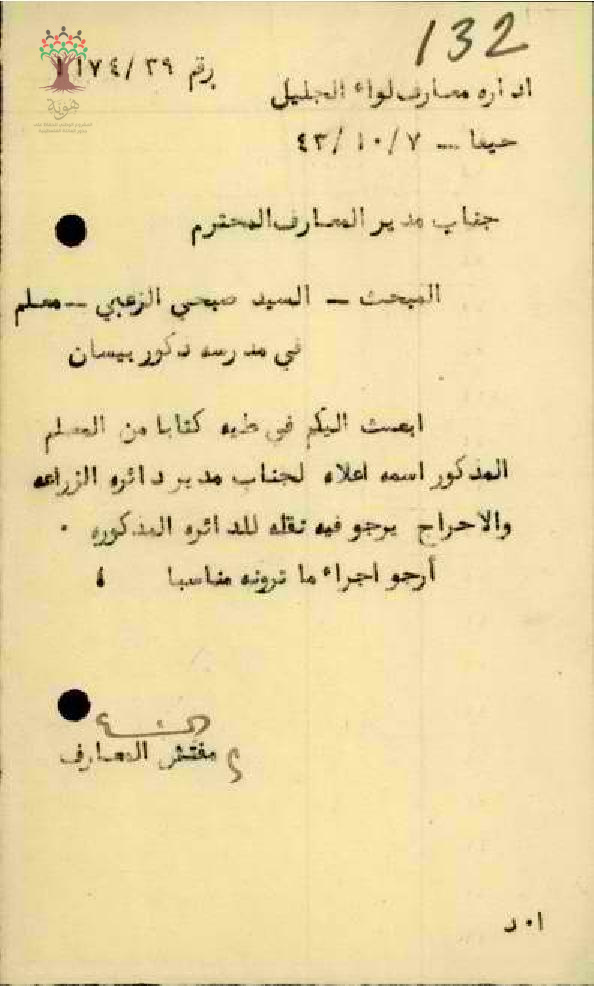 132
رقم ١١٧٤/٣٩
اداره معارف لواء الجليل
حيفا — ٤٣/١٠/٧
جناب مدير المعارف المحترم
المبحث — السيد صبحي الزعبي — معلم
في مدرسه ذكور بيسان
ابعث اليكم في طيه كتابا من المعلم
المذكور اسمه اعلاه لجناب مدير دائره الزراعه
والاحراج يرجو فيه نقله للدائره المذكوره ٠
أرجو اجراء ما ترونه مناسبا
مفتش المعارف
ا٠د
هوية